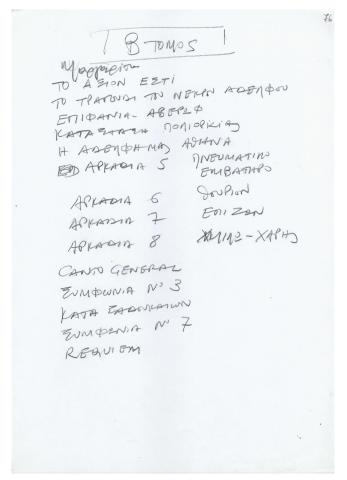 76
Β ΤΟΜΟΣ
Μαργαρίτα
ΤΟ ΑΞΙΟΝ ΕΣΤΙ
ΤΟ ΤΡΑΓΟΥΔΙ ΤΟΥ ΝΕΚΡΟΥ ΑΔΕΛΦΟΥ
ΕΠΙΦΑΝΙΑ - ΑΒΕΡΩΦ
ΚΑΤΑΣΤΑΣΗ ΠΟΛΙΟΡΚΙΑΣ
Η ΑΔΕΛΦΗ ΜΑΣ ΑΘΗΝΑ
ΑΡΚΑΔΙΑ 5 ΠΝΕΥΜΑΤΙΚΟ ΕΜΒΑΤΗΡΙΟ
ΑΡΚΑΔΙΑ 6 ΘΟΥΡΙΟΝ
ΑΡΚΑΔΙΑ 7 ΕΠΙΖΩΝ
ΑΡΚΑΔΙΑ 8 - ΧΑΡΗΣ
CANTO GENERAL
ΣΥΜΦΩΝΙΑ Νº 3
ΚΑΤΑ ΣΑΔΔΟΥΚΑΙΩΝ
ΣΥΜΦΩΝΙΑ Νº 7
REQUIEM